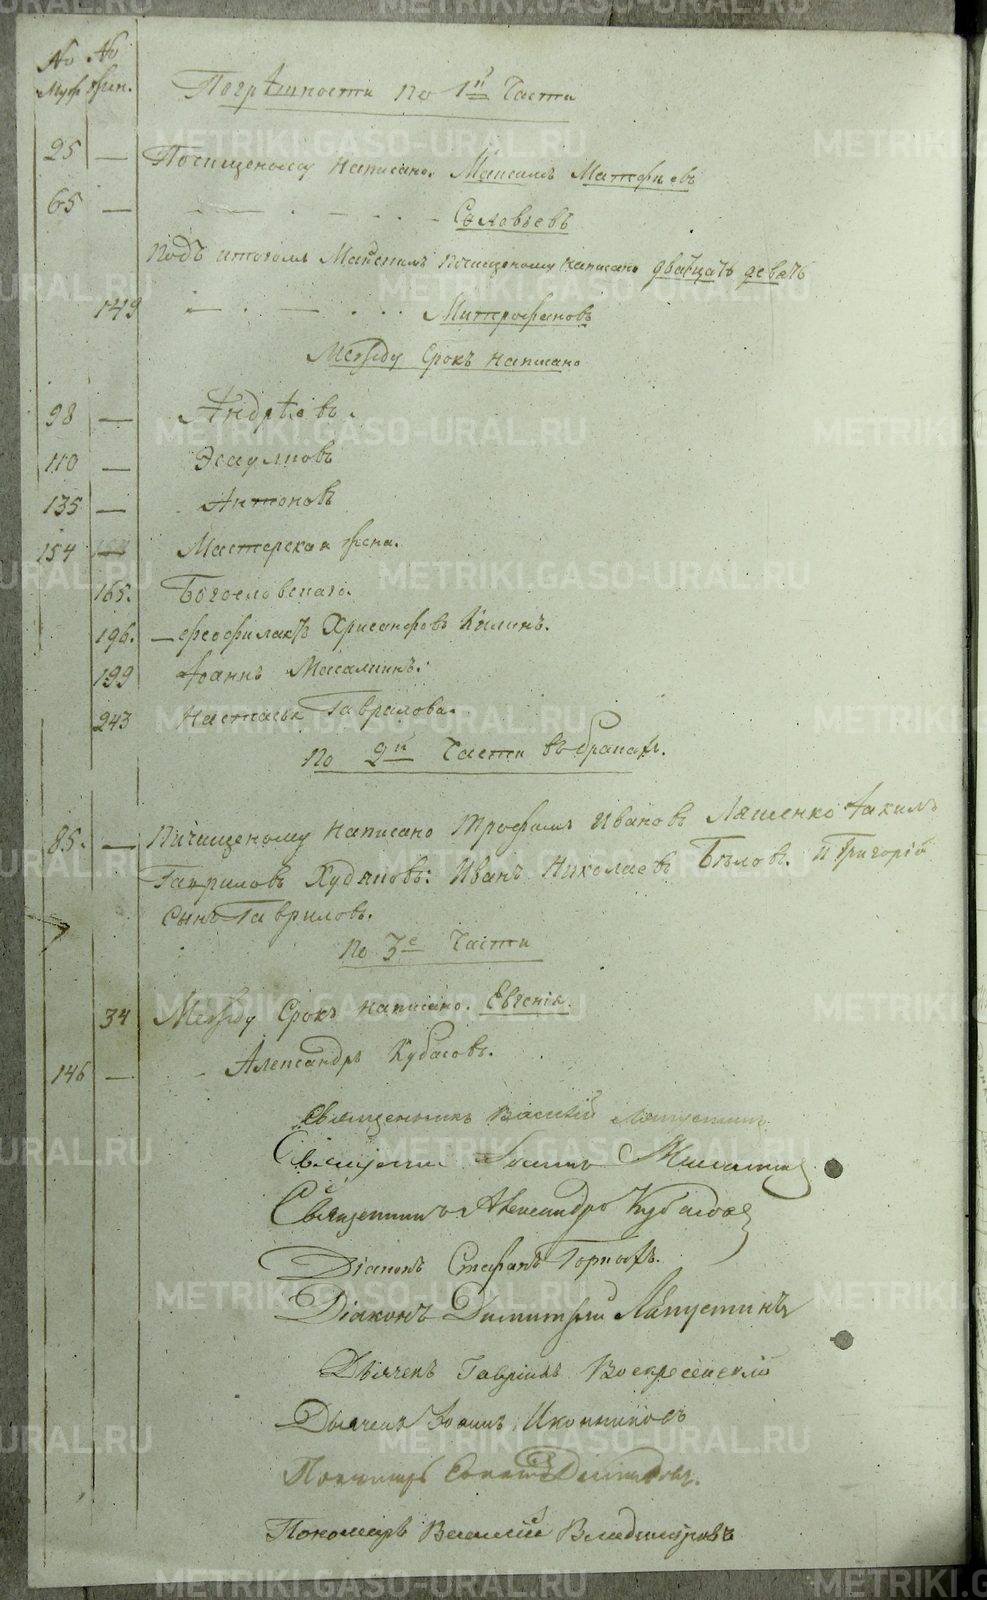 № №
Муж. жен.
Погрѣшности по 1й Части
25 — Почищеному написано. Максимъ Матфіевъ
65 — Соловьевъ
Подъ итогомъ почищеному написано дватцать девять
149 Митрофановъ
Между Срокъ написано
98 — Андрѣевъ.
110 — Эсаулковъ
135 — Антоновъ
154 — Мастерская жена.
165. Богословскаго.
196. — Феофилактъ Хрисанфовъ Килинъ.
199 Іоаннъ
243 Настасья Гаврилова.
По 2й Части въ бракахъ.
85. — Пичищеному написано Трофимъ Ивановъ Ляшенко Іакимъ
Гавриловъ Худяковъ: Иванъ Николаевъ Бѣловъ. и Григорій
Сынъ Гавриловъ.
По 3е Части
34 Между Срокъ написано. Евгенія.
146 — Александръ Кубасовъ.
Священникъ Василій Ляпустинъ
Священникъ Іоаннъ
Священникъ Александръ Кубасовъ
Діаконъ Стефанъ
Діаконъ Димитрій Ляпустинъ
Дьячекъ Гавріилъ Воскресенскій
Дьячекъ Іоаннъ Иконниковъ
Пономарь
Пономарь Василій Владиміровъ
METRIKI.GASO-URAL.RU